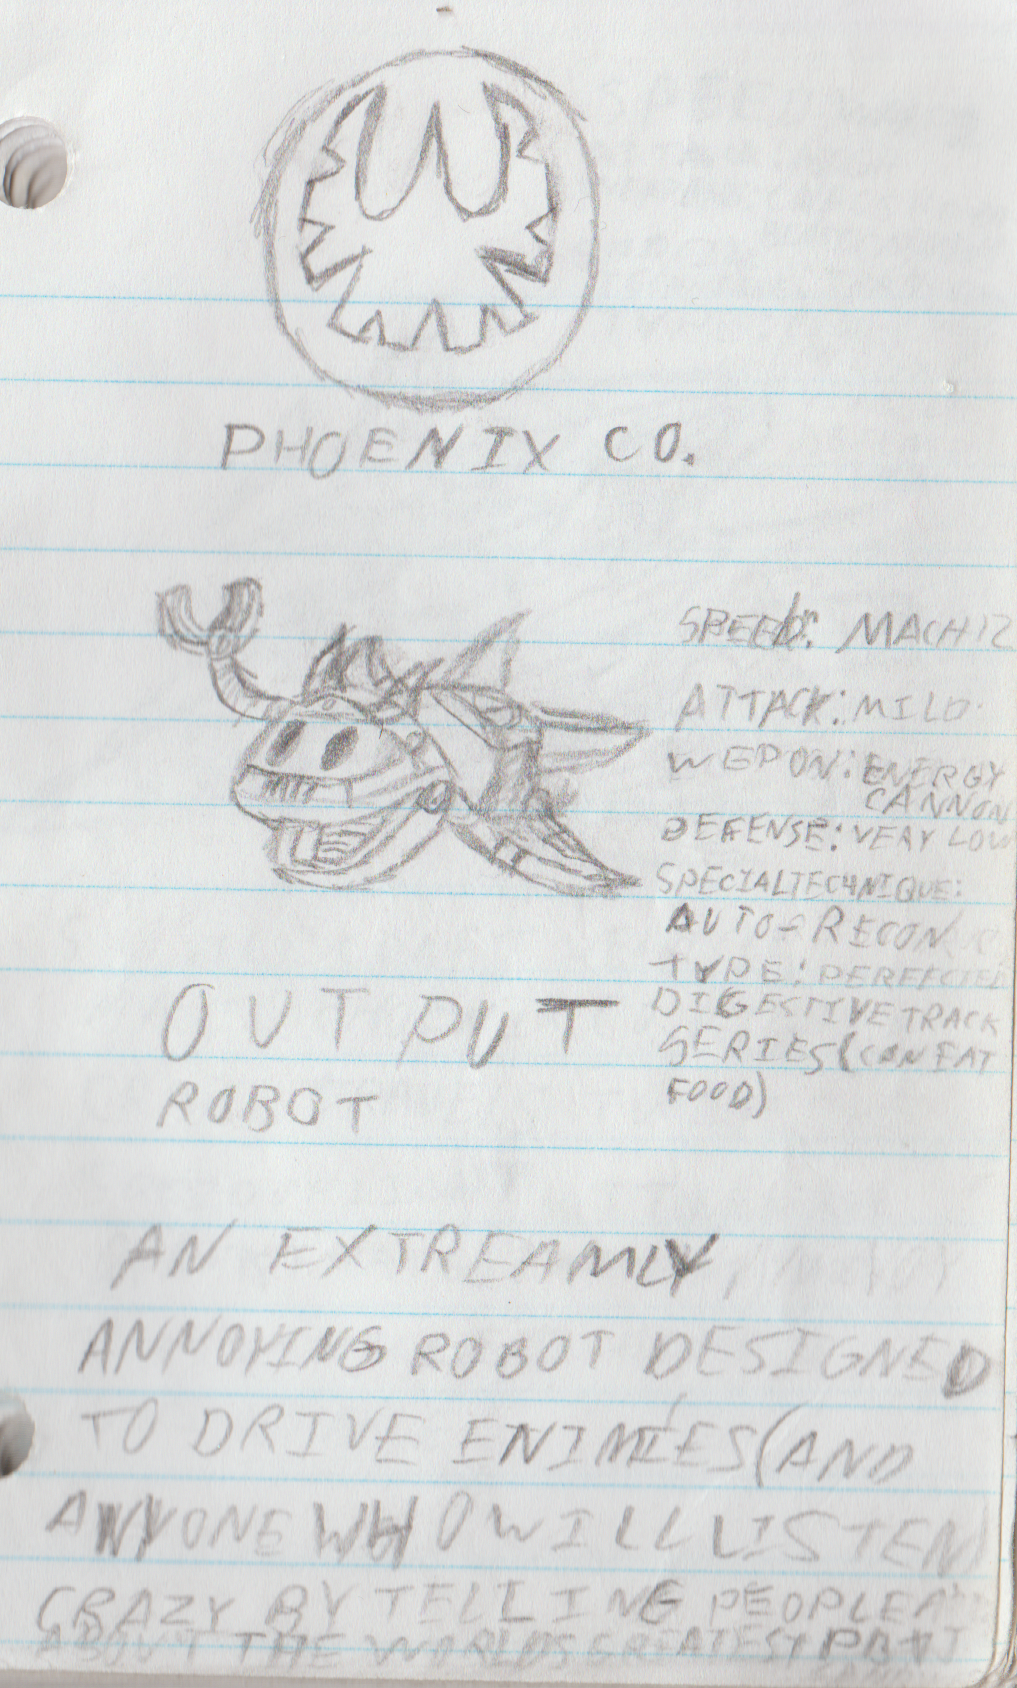 PHOENIX CO.
SPEED: MACH 12
ATTACK: MILD
WEPON: ENERGY
CANNON
DEFENSE: VERY LOW
SPECIAL TECHNIQUE:
AUTO-RECON
TYPE: PERFECTED
DIGESTIVE TRACK
SERIES (CON EAT
FOOD)
OUTPUT
ROBOT
AN EXTREAMLY
ANNOYING ROBOT DESIGNED
TO DRIVE ENIMIES (AND
ANYONE WHO WILL LISTEN
CRAZY BY TELLING PEOPLE
ABOUT THE WORLDS GREATEST